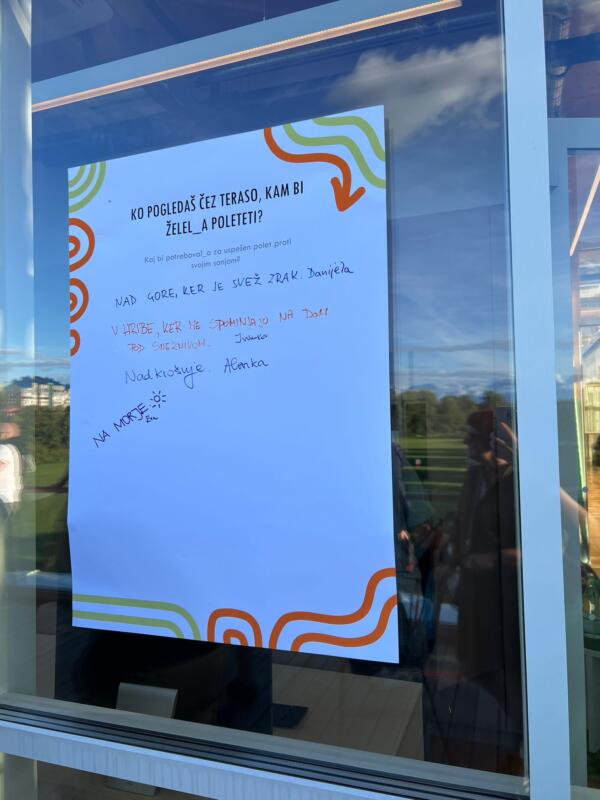 KO POGLEDAŠ ČEZ TERASO, KAM BI
ŽELEL_A POLETETI?
Kaj bi potreboval_a za uspešen polet proti
svojim sanjam?
NAD GORE, KER JE SVEŽ ZRAK. Danijela
V HRIBE, KER ME SPOMINJAJO NA DOM
POD SNEŽNIKOM.
Nad krošnje. Alenka
NA MORJE
Eva